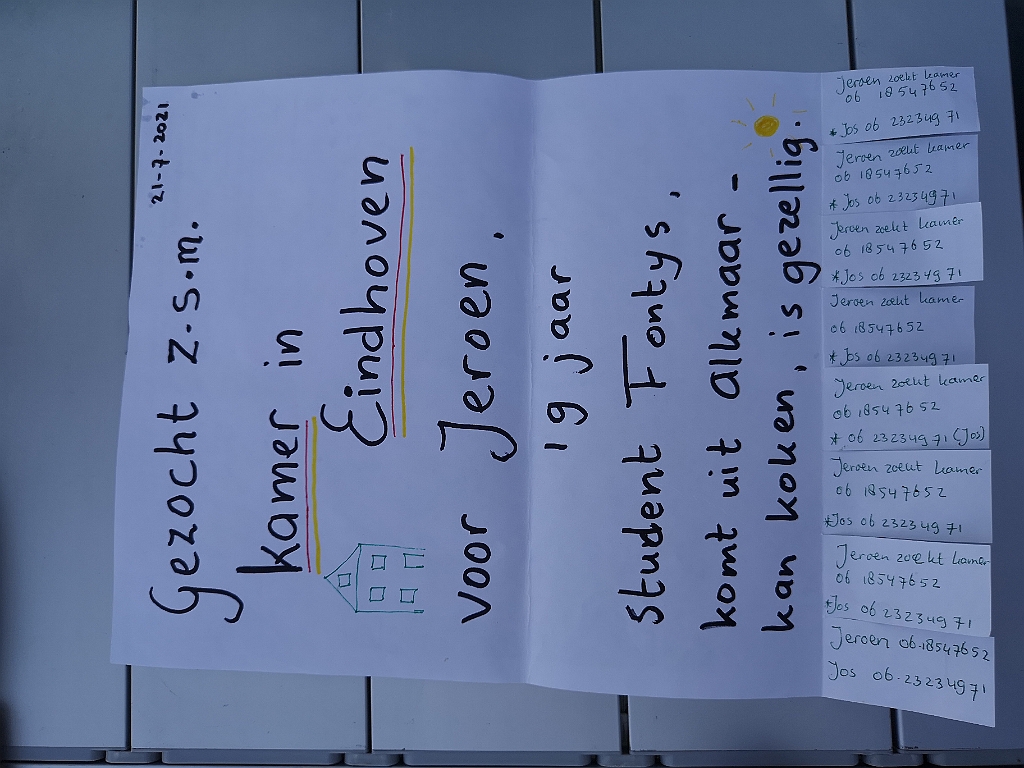 21-7-2021
Gezocht z.s.m.
kamer in
Eindhoven
voor Jeroen,
19 jaar
student Fontys,
komt uit Alkmaar -
kan koken, is gezellig.
Jeroen zoekt kamer
06 18547652
* Jos 06 23234971
Jeroen zoekt kamer
06 18547652
* Jos 06 23234971
Jeroen zoekt kamer
06 18547652
*Jos 06 23234971
Jeroen zoekt kamer
06 18547652
* Jos 06 23234971
Jeroen zoekt kamer
06 18547652
* 06 23234971 (Jos)
Jeroen zoekt kamer
06 18547652
*Jos 06 23234971
Jeroen zoekt kamer
06 18547652
*Jos 06 23234971
Jeroen 06-18547652
Jos 06-23234971